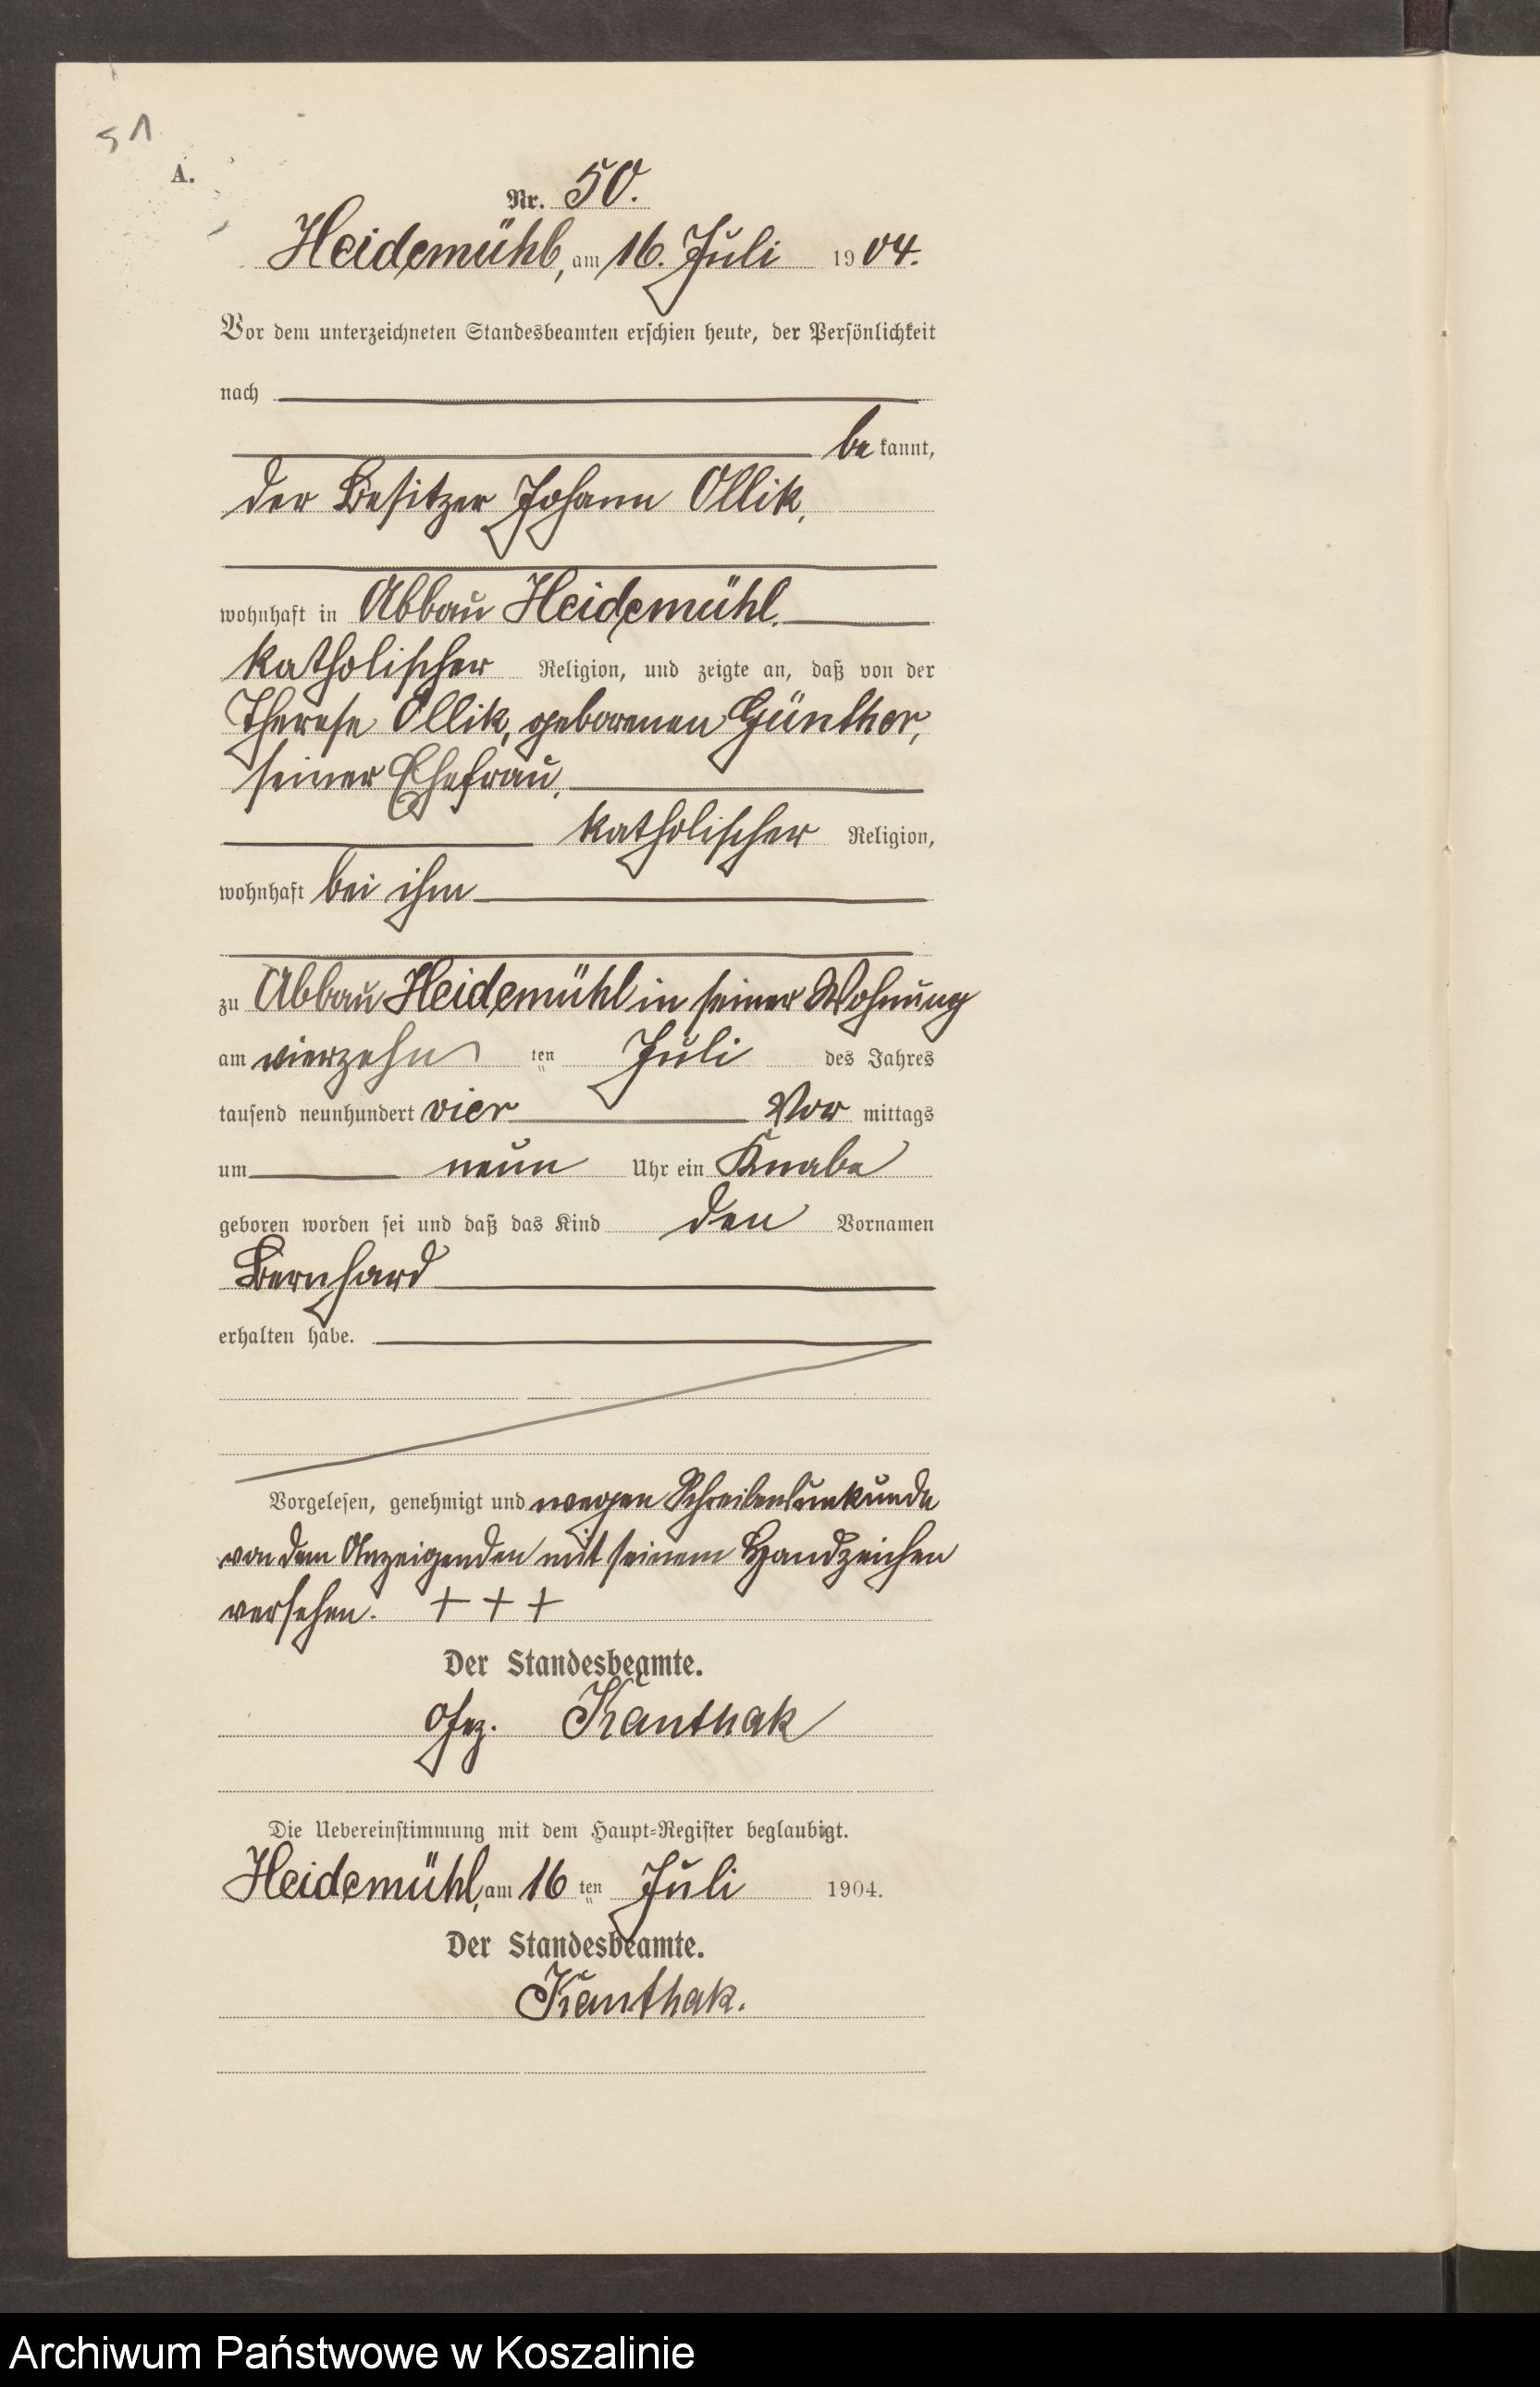 51
A.
Nr. 50.
Heidemühl, am 16. Juli 1904.
Vor dem unterzeichneten Standesbeamten erschien heute, der Persönlichkeit
nach
be kannt,
der Besitzer Johann Ollik,
wohnhaft in Abbau Heidemühl.
katholischer Religion, und zeigte an, daß von der
Therese Ollik, geborenen Günther,
seiner Ehefrau,
katholischer Religion,
wohnhaft bei ihm
zu Abbau Heidemühl in seiner Wohnung
am vierzehn ten Juli des Jahres
tausend neunhundert vier Vor mittags
um neun Uhr ein Knabe
geboren worden sei und daß das Kind den Vornamen
Bernhard
erhalten habe.
Vorgelesen, genehmigt und wegen Schreibensunkunde
von dem Anzeigenden mit seinem Handzeichen
versehen. + + +
Der Standesbeamte.
Gez. Kanthak
Die Uebereinstimmung mit dem Haupt-Register beglaubigt.
Heidemühl, am 16 ten Juli 1904.
Der Standesbeamte.
Kanthak.
Archiwum Państwowe w Koszalinie